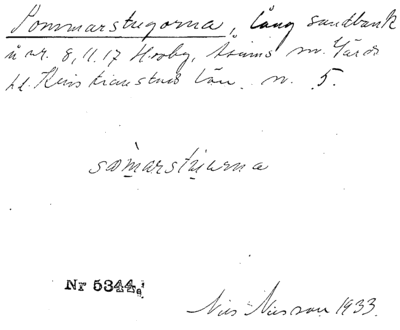 Sommarstugorna, lång sandbank
å nr. 8, 11, 17 Horby, sn. Gärds
hd. Kristianstads län. n. 5.
somarstuorna
Nr 5344a
Nils Nilsson 1933.